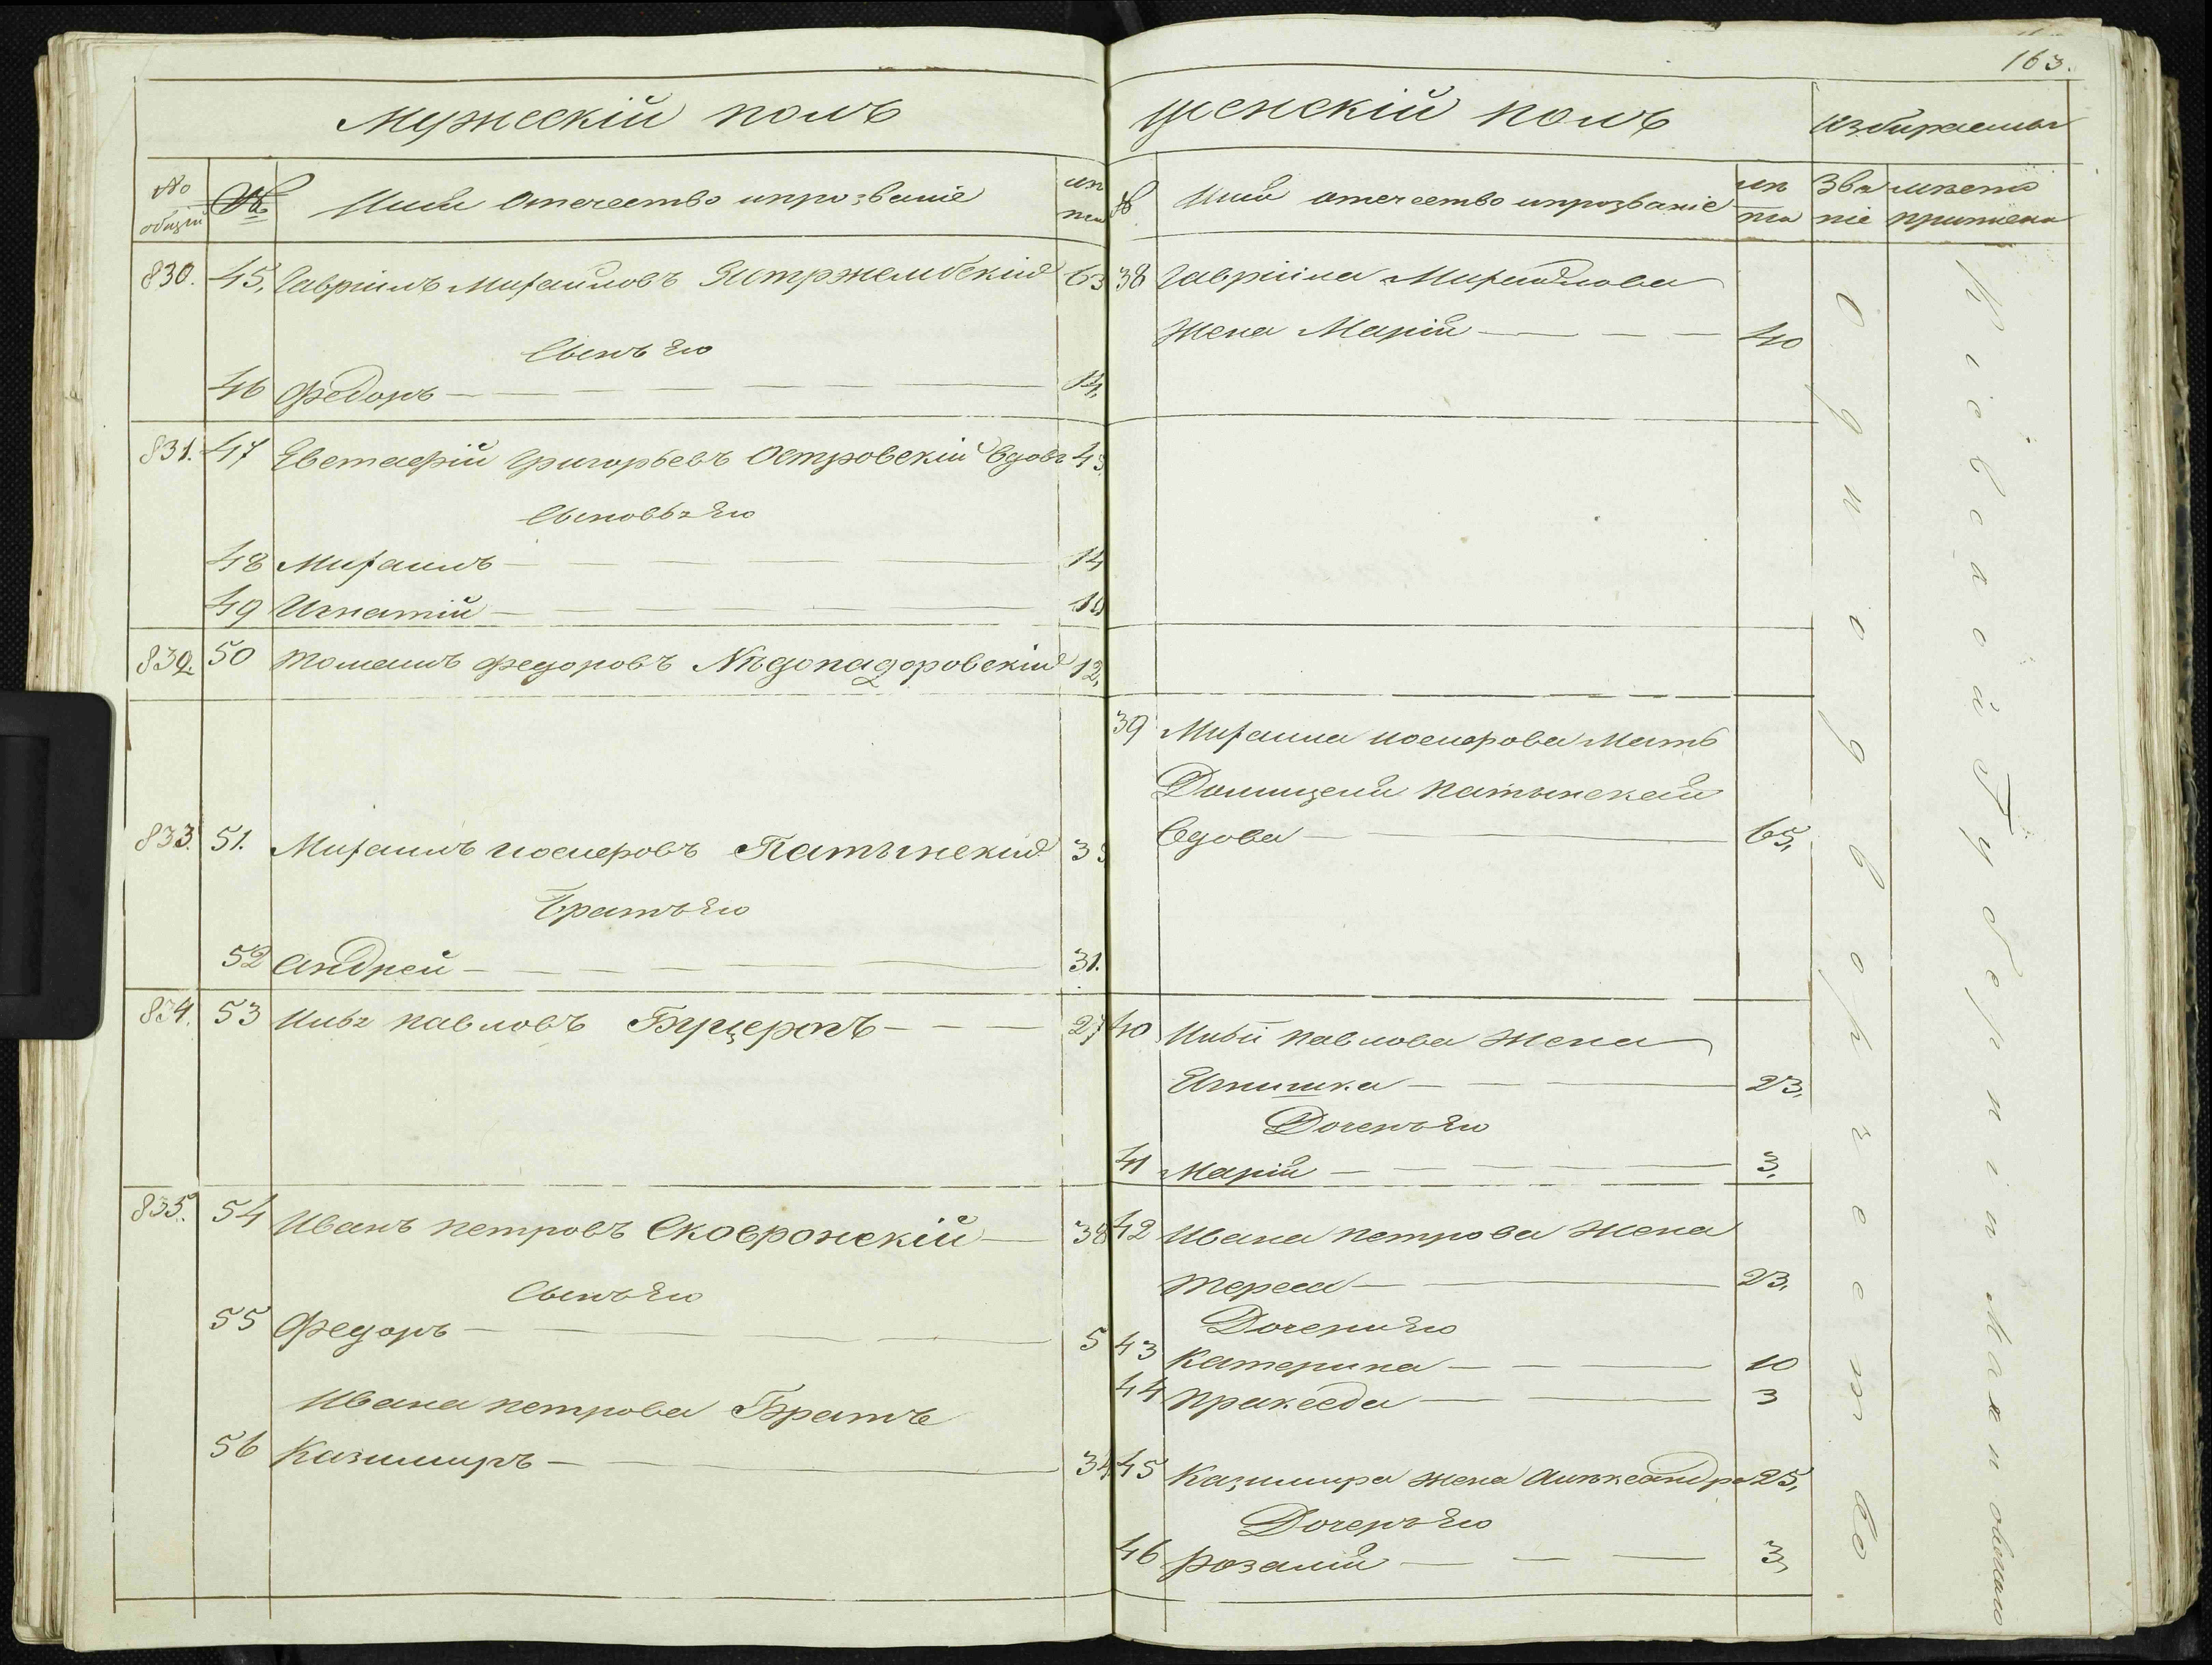 163.
Мужескій полъ
№ общій
№
Имя Отечество и прозваніе
лѣта
830. 45. Гавріилъ Михайловъ Ястржембскій 63
Сынъ Его
46 Федоръ 14,
831. 47 Евстафій Григорьевъ Островскій вдовъ 43.
Сыновья Его
48 Михаилъ 14
49 Игнатій 10
832. 50 Томашъ Федоровъ Недопадоровскій 12,
833. 51. Михаилъ Іосифовъ Патынскій
Братъ Его
52 Андрей 31.
834. 53 Илья Павловъ Буцерогъ 27
835. 54 Иванъ Петровъ Сковронскій 38
Сынъ Его
55 Федоръ 5
Ивана Петрова Братъ
56 Казимиръ 34
Женскій полъ
Избираемыя
№
Имя отечество и прозваніе
лѣта
Званіе
мѣсто
38 Гавріила Михайлова
Жена Марія 40
39 Михаила Іосифова Мать
Домицеля Патынская
Вдова 65,
40 Ильи Павлова Жена
23,
Дочь Его
41 Марія 3,
42 Ивана Петрова Жена
Тереса 23,
Дочери Его
43 Катерина 10
44 Пракседа 3
45 Казимира жена Александра 25,
Дочерь Его
46 Розалія 3,
Однодворчество
Кіевской Губерніи